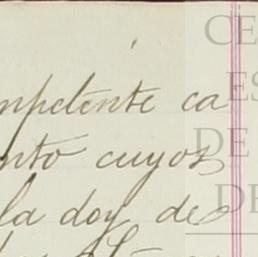 mpetente ca
nto cuyos
la doy, de
CE
ES
DE
DE